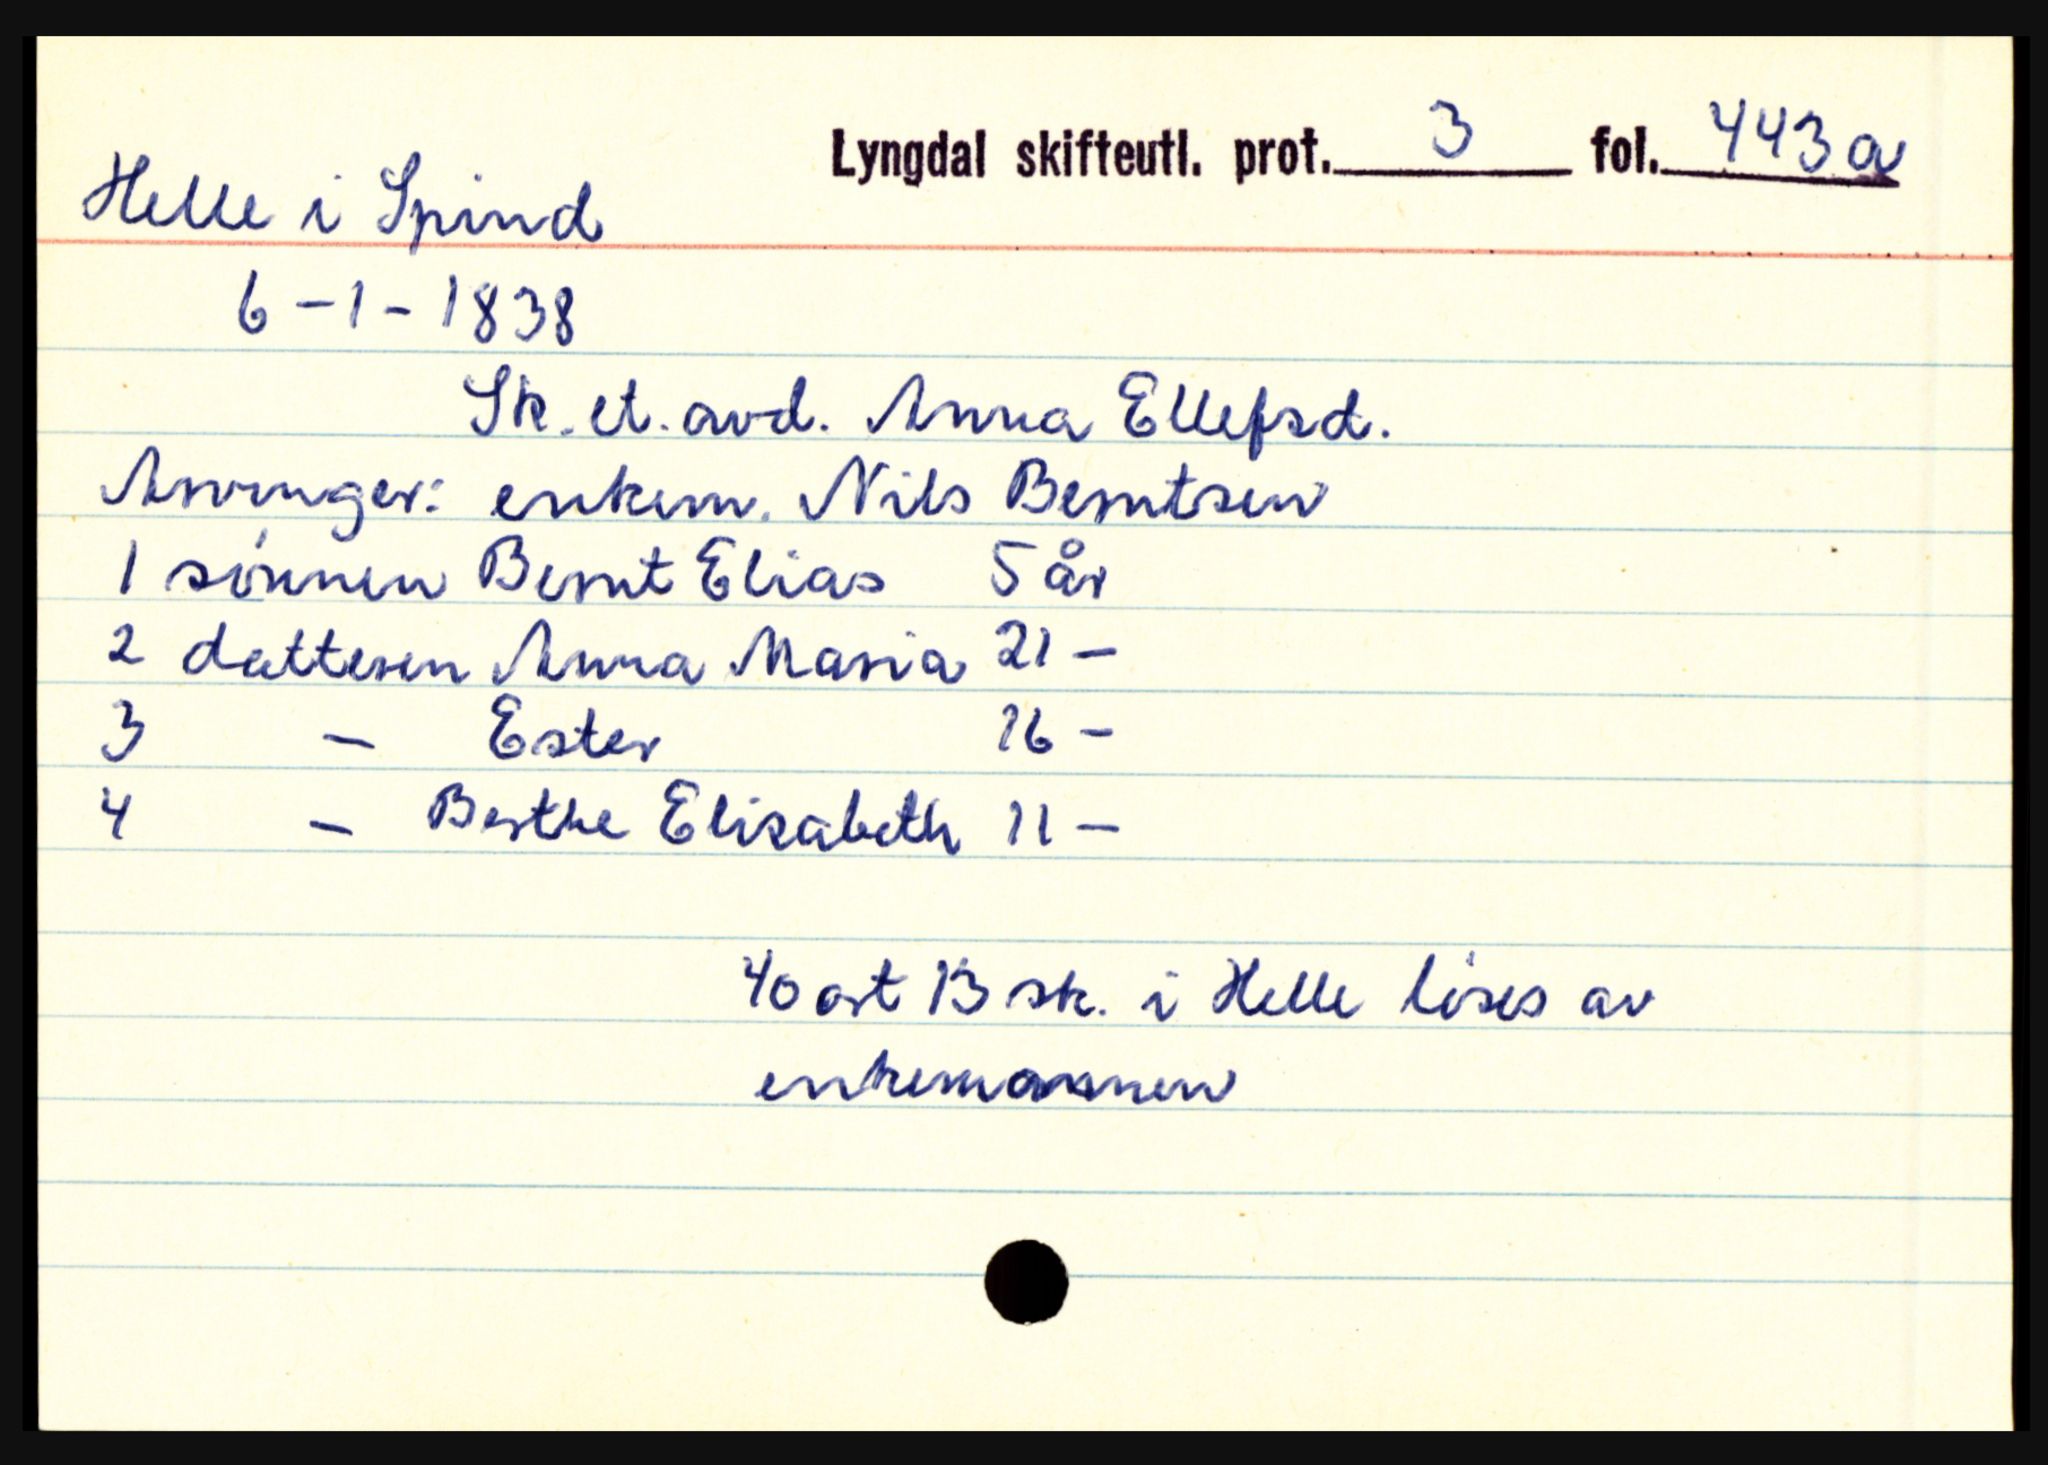 Lyngdal skifteutl. prot. 3 fol. 443a
Helle i Spind
6-1-1838
Sk. et. avd. Anna Ellefsd.
Arvinger: enkem. Nils Berntsen
1 sønnen Bernt Elias 5 år
2 datteren Anna Maria 21 -
3 - Ester 16 -
4 - Berthe Elisabeth 11 -
40 ort 13 sk. i Helle løses av
enkemannen